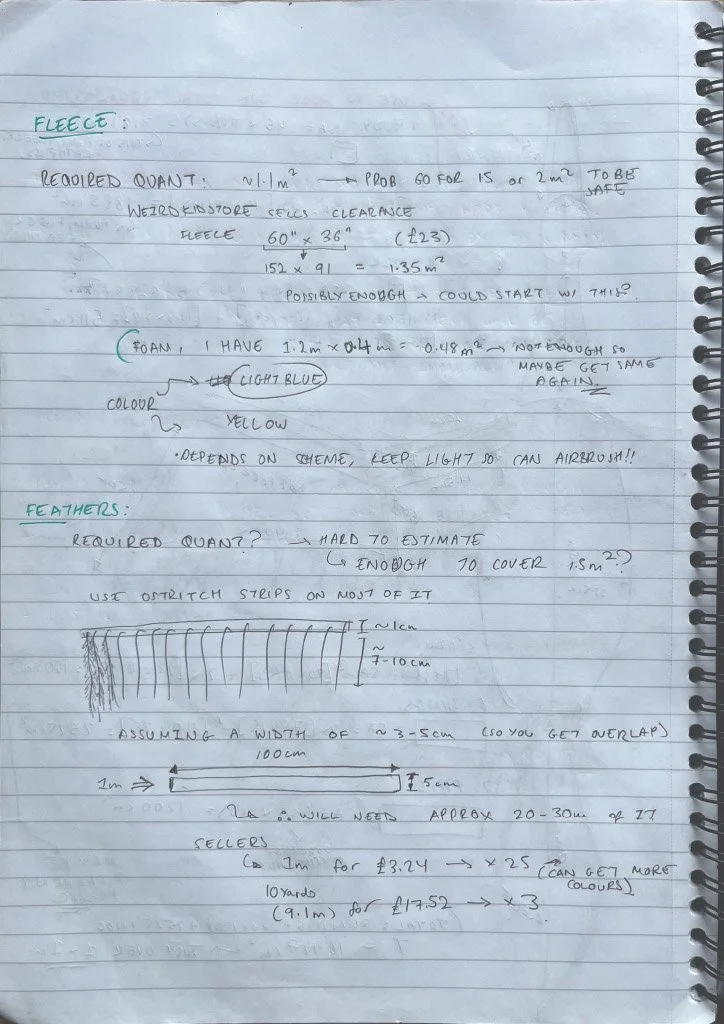 FLEECE:
REQUIRED QUANT: ~1.1m² → PROB GO FOR 1.5 or 2m² TO BE
SAFE
WEIRDKIDSTORE SELLS CLEARANCE
FLEECE 60" x 36" (£23)
152 x 91 = 1.35m²
POSSIBLY ENOUGH → COULD START W/ THIS?
(FOAM, I HAVE 1.2m x 0.4m = 0.48m² → NOT ENOUGH SO
MAYBE GET SAME
AGAIN.
LIGHT BLUE
COLOUR
YELLOW
•DEPENDS ON SCHEME, KEEP LIGHT SO CAN AIRBRUSH!!
FEATHERS:
REQUIRED QUANT? → HARD TO ESTIMATE
↳ ENOUGH TO COVER 1.5m²?
USE OSTRITCH STRIPS ON MOST OF IT
~1cm
~
7-10cm
ASSUMING A WIDTH OF ~3-5cm (SO YOU GET OVERLAP)
100cm
1m ⇒ 5cm
∴ WILL NEED APPROX 20-30m of IT
SELLERS
↳ 1m for £3.24 → x 25 (CAN GET MORE
COLOURS)
10 yards
(9.1m) for £17.52 → x 3.